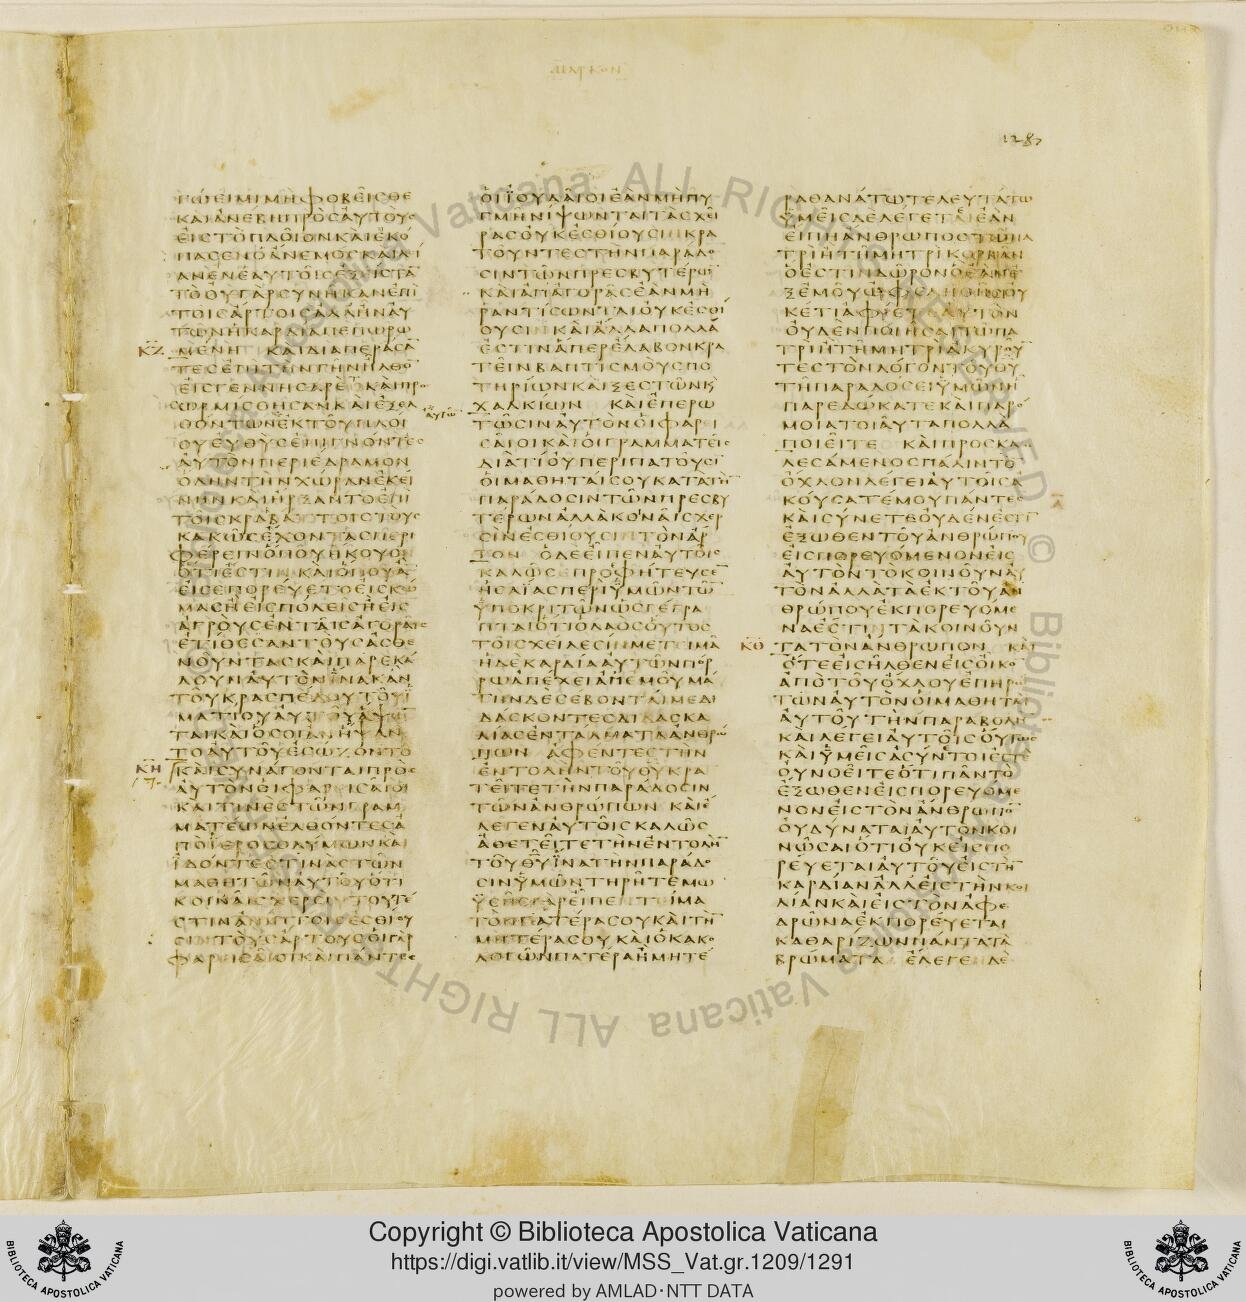 ΚΑΤΑ ΜΑΡΚ
1287
ΓΩ ΕΙΜΙ ΜΗ ΦΟΒΕΙΣΘΕ
ΚΑΙ ΑΝΕΒΗ ΠΡΟΣ ΑΥΤΟΥΣ
ΕΙΣ ΤΟ ΠΛΟΙΟΝ ΚΑΙ ΕΚΟ
ΠΑΣΕΝ Ο ΑΝΕΜΟΣ ΚΑΙ ΛΙ
ΑΝ ΕΝ ΕΑΥΤΟΙΣ ΕΞΙΣΤΑΝ
ΤΟ ΟΥ ΓΑΡ ΣΥΝΗΚΑΝ ΕΠΙ
ΤΟΙΣ ΑΡΤΟΙΣ ΑΛΛ ΗΝ ΑΥ
ΤΩΝ Η ΚΑΡΔΙΑ ΠΕΠΩΡΩ
ΚΖ ΜΕΝΗ ΚΑΙ ΔΙΑΠΕΡΑΣΑΝ
ΤΕΣ ΕΠΙ ΤΗΝ ΓΗΝ ΗΛΘΟΝ
ΕΙΣ ΓΕΝΝΗΣΑΡΕΤ ΚΑΙ ΠΡΟΣ
ΩΡΜΙΣΘΗΣΑΝ ΚΑΙ ΕΞΕΛ
ΘΟΝΤΩΝ ΕΚ ΤΟΥ ΠΛΟΙ
ΟΥ ΕΥΘΥΣ ΕΠΙΓΝΟΝΤΕΣ
ΑΥΤΟΝ ΠΕΡΙΕΔΡΑΜΟΝ
ΟΛΗΝ ΤΗΝ ΧΩΡΑΝ ΕΚΕΙ
ΝΗΝ ΚΑΙ ΗΡΞΑΝΤΟ ΕΠΙ
ΤΟΙΣ ΚΡΑΒΑΤΤΟΙΣ ΤΟΥΣ
ΚΑΚΩΣ ΕΧΟΝΤΑΣ ΠΕΡΙ
ΦΕΡΕΙΝ ΟΠΟΥ ΗΚΟΥΟΝ
ΟΤΙ ΕΣΤΙΝ ΚΑΙ ΟΠΟΥ ΑΝ
ΕΙΣΕΠΟΡΕΥΕΤΟ ΕΙΣ ΚΩ
ΜΑΣ Η ΕΙΣ ΠΟΛΕΙΣ Η ΕΙΣ
ΑΓΡΟΥΣ ΕΝ ΤΑΙΣ ΑΓΟΡΑΙΣ
ΕΤΙΘΕΣΑΝ ΤΟΥΣ ΑΣΘΕ
ΝΟΥΝΤΑΣ ΚΑΙ ΠΑΡΕΚΑ
ΛΟΥΝ ΑΥΤΟΝ ΙΝΑ ΚΑΝ
ΤΟΥ ΚΡΑΣΠΕΔΟΥ ΤΟΥ Ι
ΜΑΤΙΟΥ ΑΥΤΟΥ ΑΨΩΝ
ΤΑΙ ΚΑΙ ΟΣΟΙ ΑΝ ΗΨΑΝ
ΤΟ ΑΥΤΟΥ ΕΣΩΖΟΝΤΟ
ΚΗ ΚΑΙ ΣΥΝΑΓΟΝΤΑΙ ΠΡΟΣ
ΑΥΤΟΝ ΟΙ ΦΑΡΕΙΣΑΙΟΙ
ΚΑΙ ΤΙΝΕΣ ΤΩΝ ΓΡΑΜ
ΜΑΤΕΩΝ ΕΛΘΟΝΤΕΣ Α
ΠΟ ΙΕΡΟΣΟΛΥΜΩΝ ΚΑΙ
ΙΔΟΝΤΕΣ ΤΙΝΑΣ ΤΩΝ
ΜΑΘΗΤΩΝ ΑΥΤΟΥ ΟΤΙ
ΚΟΙΝΑΙΣ ΧΕΡΣΙΝ ΤΟΥΤΕ
ΣΤΙΝ ΑΝΙΠΤΟΙΣ ΕΣΘΙΟΥ
ΣΙΝ ΤΟΥΣ ΑΡΤΟΥΣ ΟΙ ΓΑΡ
ΦΑΡΕΙΣΑΙΟΙ ΚΑΙ ΠΑΝΤΕΣ
ΟΙ ΙΟΥΔΑΙΟΙ ΕΑΝ ΜΗ ΠΥ
ΓΜΗ ΝΙΨΩΝΤΑΙ ΤΑΣ ΧΕΙ
ΡΑΣ ΟΥΚ ΕΣΘΙΟΥΣΙΝ ΚΡΑ
ΤΟΥΝΤΕΣ ΤΗΝ ΠΑΡΑΔΟ
ΣΙΝ ΤΩΝ ΠΡΕΣΒΥΤΕΡΩΝ
ΚΑΙ ΑΠ ΑΓΟΡΑΣ ΕΑΝ ΜΗ
ΡΑΝΤΙΣΩΝΤΑΙ ΟΥΚ ΕΣΘΙ
ΟΥΣΙΝ ΚΑΙ ΑΛΛΑ ΠΟΛΛΑ
ΕΣΤΙΝ ΑΠΕΡ ΕΛΑΒΟΝ ΚΡΑ
ΤΕΙΝ ΒΑΠΤΙΣΜΟΥΣ ΠΟ
ΤΗΡΙΩΝ ΚΑΙ ΞΕΣΤΩΝ Κ
ΧΑΛΚΙΩΝ ΚΑΙ ΕΠΕΡΩ
ΤΩΣΙΝ ΑΥΤΟΝ ΟΙ ΦΑΡΙ
ΣΑΙΟΙ ΚΑΙ ΟΙ ΓΡΑΜΜΑΤΕΙΣ
ΔΙΑ ΤΙ ΟΥ ΠΕΡΙΠΑΤΟΥΣΙΝ
ΟΙ ΜΑΘΗΤΑΙ ΣΟΥ ΚΑΤΑ ΤΗΝ
ΠΑΡΑΔΟΣΙΝ ΤΩΝ ΠΡΕΣΒΥ
ΤΕΡΩΝ ΑΛΛΑ ΚΟΙΝΑΙΣ ΧΕΡ
ΣΙΝ ΕΣΘΙΟΥΣΙΝ ΤΟΝ ΑΡ
ΤΟΝ Ο ΔΕ ΕΙΠΕΝ ΑΥΤΟΙΣ
ΚΑΛΩΣ ΕΠΡΟΦΗΤΕΥΣΕΝ
ΗΣΑΙΑΣ ΠΕΡΙ ΥΜΩΝ ΤΩΝ
ΥΠΟΚΡΙΤΩΝ ΩΣ ΓΕΓΡΑ
ΠΤΑΙ ΟΤΙ Ο ΛΑΟΣ ΟΥΤΟΣ
ΤΟΙΣ ΧΕΙΛΕΣΙΝ ΜΕ ΤΕΙΜΑ
Η ΔΕ ΚΑΡΔΙΑ ΑΥΤΩΝ ΠΟΡ
ΡΩ ΑΠΕΧΕΙ ΑΠ ΕΜΟΥ ΜΑ
ΤΗΝ ΔΕ ΣΕΒΟΝΤΑΙ ΜΕ ΔΙ
ΔΑΣΚΟΝΤΕΣ ΔΙΔΑΣΚΑ
ΛΙΑΣ ΕΝΤΑΛΜΑΤΑ ΑΝΘΡΩ
ΠΩΝ ΑΦΕΝΤΕΣ ΤΗΝ
ΕΝΤΟΛΗΝ ΤΟΥ ΘΥ ΚΡΑ
ΤΕΙΤΕ ΤΗΝ ΠΑΡΑΔΟΣΙΝ
ΤΩΝ ΑΝΘΡΩΠΩΝ ΚΑΙ Ε
ΛΕΓΕΝ ΑΥΤΟΙΣ ΚΑΛΩΣ
ΑΘΕΤΕΙΤΕ ΤΗΝ ΕΝΤΟΛΗΝ
ΤΟΥ ΘΥ ΙΝΑ ΤΗΝ ΠΑΡΑΔΟ
ΣΙΝ ΥΜΩΝ ΤΗΡΗΤΕ ΜΩ
ΥΣΗΣ ΓΑΡ ΕΙΠΕΝ ΤΕΙΜΑ
ΤΟΝ ΠΑΤΕΡΑ ΣΟΥ ΚΑΙ ΤΗΝ
ΜΗΤΕΡΑ ΣΟΥ ΚΑΙ Ο ΚΑΚΟ
ΛΟΓΩΝ ΠΑΤΕΡΑ Η ΜΗΤΕ
ΡΑ ΘΑΝΑΤΩ ΤΕΛΕΥΤΑΤΩ
ΥΜΕΙΣ ΔΕ ΛΕΓΕΤΕ ΕΑΝ
ΕΙΠΗ ΑΝΘΡΩΠΟΣ ΤΩ ΠΑ
ΤΡΙ Η ΤΗ ΜΗΤΡΙ ΚΟΡΒΑΝ
Ο ΕΣΤΙΝ ΔΩΡΟΝ Ο ΕΑΝ Ε
ΞΕΜΟΥ ΩΦΕΛΗΘΗΣ ΟΥ
ΚΕΤΙ ΑΦΙΕΤΕ ΑΥΤΟΝ
ΟΥΔΕΝ ΠΟΙΗΣΑΙ ΤΩ ΠΑ
ΤΡΙ Η ΤΗ ΜΗΤΡΙ ΑΚΥΡΟΥΝ
ΤΕΣ ΤΟΝ ΛΟΓΟΝ ΤΟΥ ΘΥ
ΤΗ ΠΑΡΑΔΟΣΕΙ ΥΜΩΝ Η
ΠΑΡΕΔΩΚΑΤΕ ΚΑΙ ΠΑΡΟ
ΜΟΙΑ ΤΟΙΑΥΤΑ ΠΟΛΛΑ
ΠΟΙΕΙΤΕ ΚΑΙ ΠΡΟΣΚΑ
ΛΕΣΑΜΕΝΟΣ ΠΑΛΙΝ ΤΟΝ
ΟΧΛΟΝ ΛΕΓΕΙ ΑΥΤΟΙΣ Α
ΚΟΥΣΑΤΕ ΜΟΥ ΠΑΝΤΕΣ
ΚΑΙ ΣΥΝΕΤΕ ΟΥΔΕΝ ΕΣΤΙΝ
ΕΞΩΘΕΝ ΤΟΥ ΑΝΘΡΩΠΟΥ
ΕΙΣΠΟΡΕΥΟΜΕΝΟΝ ΕΙΣ
ΑΥΤΟΝ ΤΟ ΚΟΙΝΟΥΝ ΑΥ
ΤΟΝ ΑΛΛΑ ΤΑ ΕΚ ΤΟΥ ΑΝ
ΘΡΩΠΟΥ ΕΚΠΟΡΕΥΟΜΕ
ΝΑ ΕΣΤΙΝ ΤΑ ΚΟΙΝΟΥΝ
ΚΘ ΤΑ ΤΟΝ ΑΝΘΡΩΠΟΝ ΚΑΙ
ΟΤΕ ΕΙΣΗΛΘΕΝ ΕΙΣ ΟΙΚΟΝ
ΑΠΟ ΤΟΥ ΟΧΛΟΥ ΕΠΗΡΩ
ΤΩΝ ΑΥΤΟΝ ΟΙ ΜΑΘΗΤΑΙ
ΑΥΤΟΥ ΤΗΝ ΠΑΡΑΒΟΛΗΝ
ΚΑΙ ΛΕΓΕΙ ΑΥΤΟΙΣ ΟΥΤΩΣ
ΚΑΙ ΥΜΕΙΣ ΑΣΥΝΤΟΙ ΕΣΤΕ
ΟΥ ΝΟΕΙΤΕ ΟΤΙ ΠΑΝ ΤΟ
ΕΞΩΘΕΝ ΕΙΣΠΟΡΕΥΟΜΕ
ΝΟΝ ΕΙΣ ΤΟΝ ΑΝΘΡΩΠΟΝ
ΟΥ ΔΥΝΑΤΑΙ ΑΥΤΟΝ ΚΟΙ
ΝΩΣΑΙ ΟΤΙ ΟΥΚ ΕΙΣΠΟ
ΡΕΥΕΤΑΙ ΑΥΤΟΥ ΕΙΣ ΤΗΝ
ΚΑΡΔΙΑΝ ΑΛΛ ΕΙΣ ΤΗΝ ΚΟΙ
ΛΙΑΝ ΚΑΙ ΕΙΣ ΤΟΝ ΑΦΕ
ΔΡΩΝΑ ΕΚΠΟΡΕΥΕΤΑΙ
ΚΑΘΑΡΙΖΩΝ ΠΑΝΤΑ ΤΑ
ΒΡΩΜΑΤΑ ΕΛΕΓΕΝ ΔΕ
Copyright © Biblioteca Apostolica Vaticana
https://digi.vatlib.it/view/MSS_Vat.gr.1209/1291
powered by AMLAD·NTT DATA